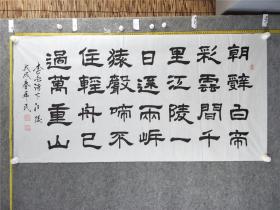 朝辭白帝
彩雲間千
里江陵一
日還兩岸
猿聲啼不
住輕舟已
過萬重山
李白诗下江陵
戊戌春民